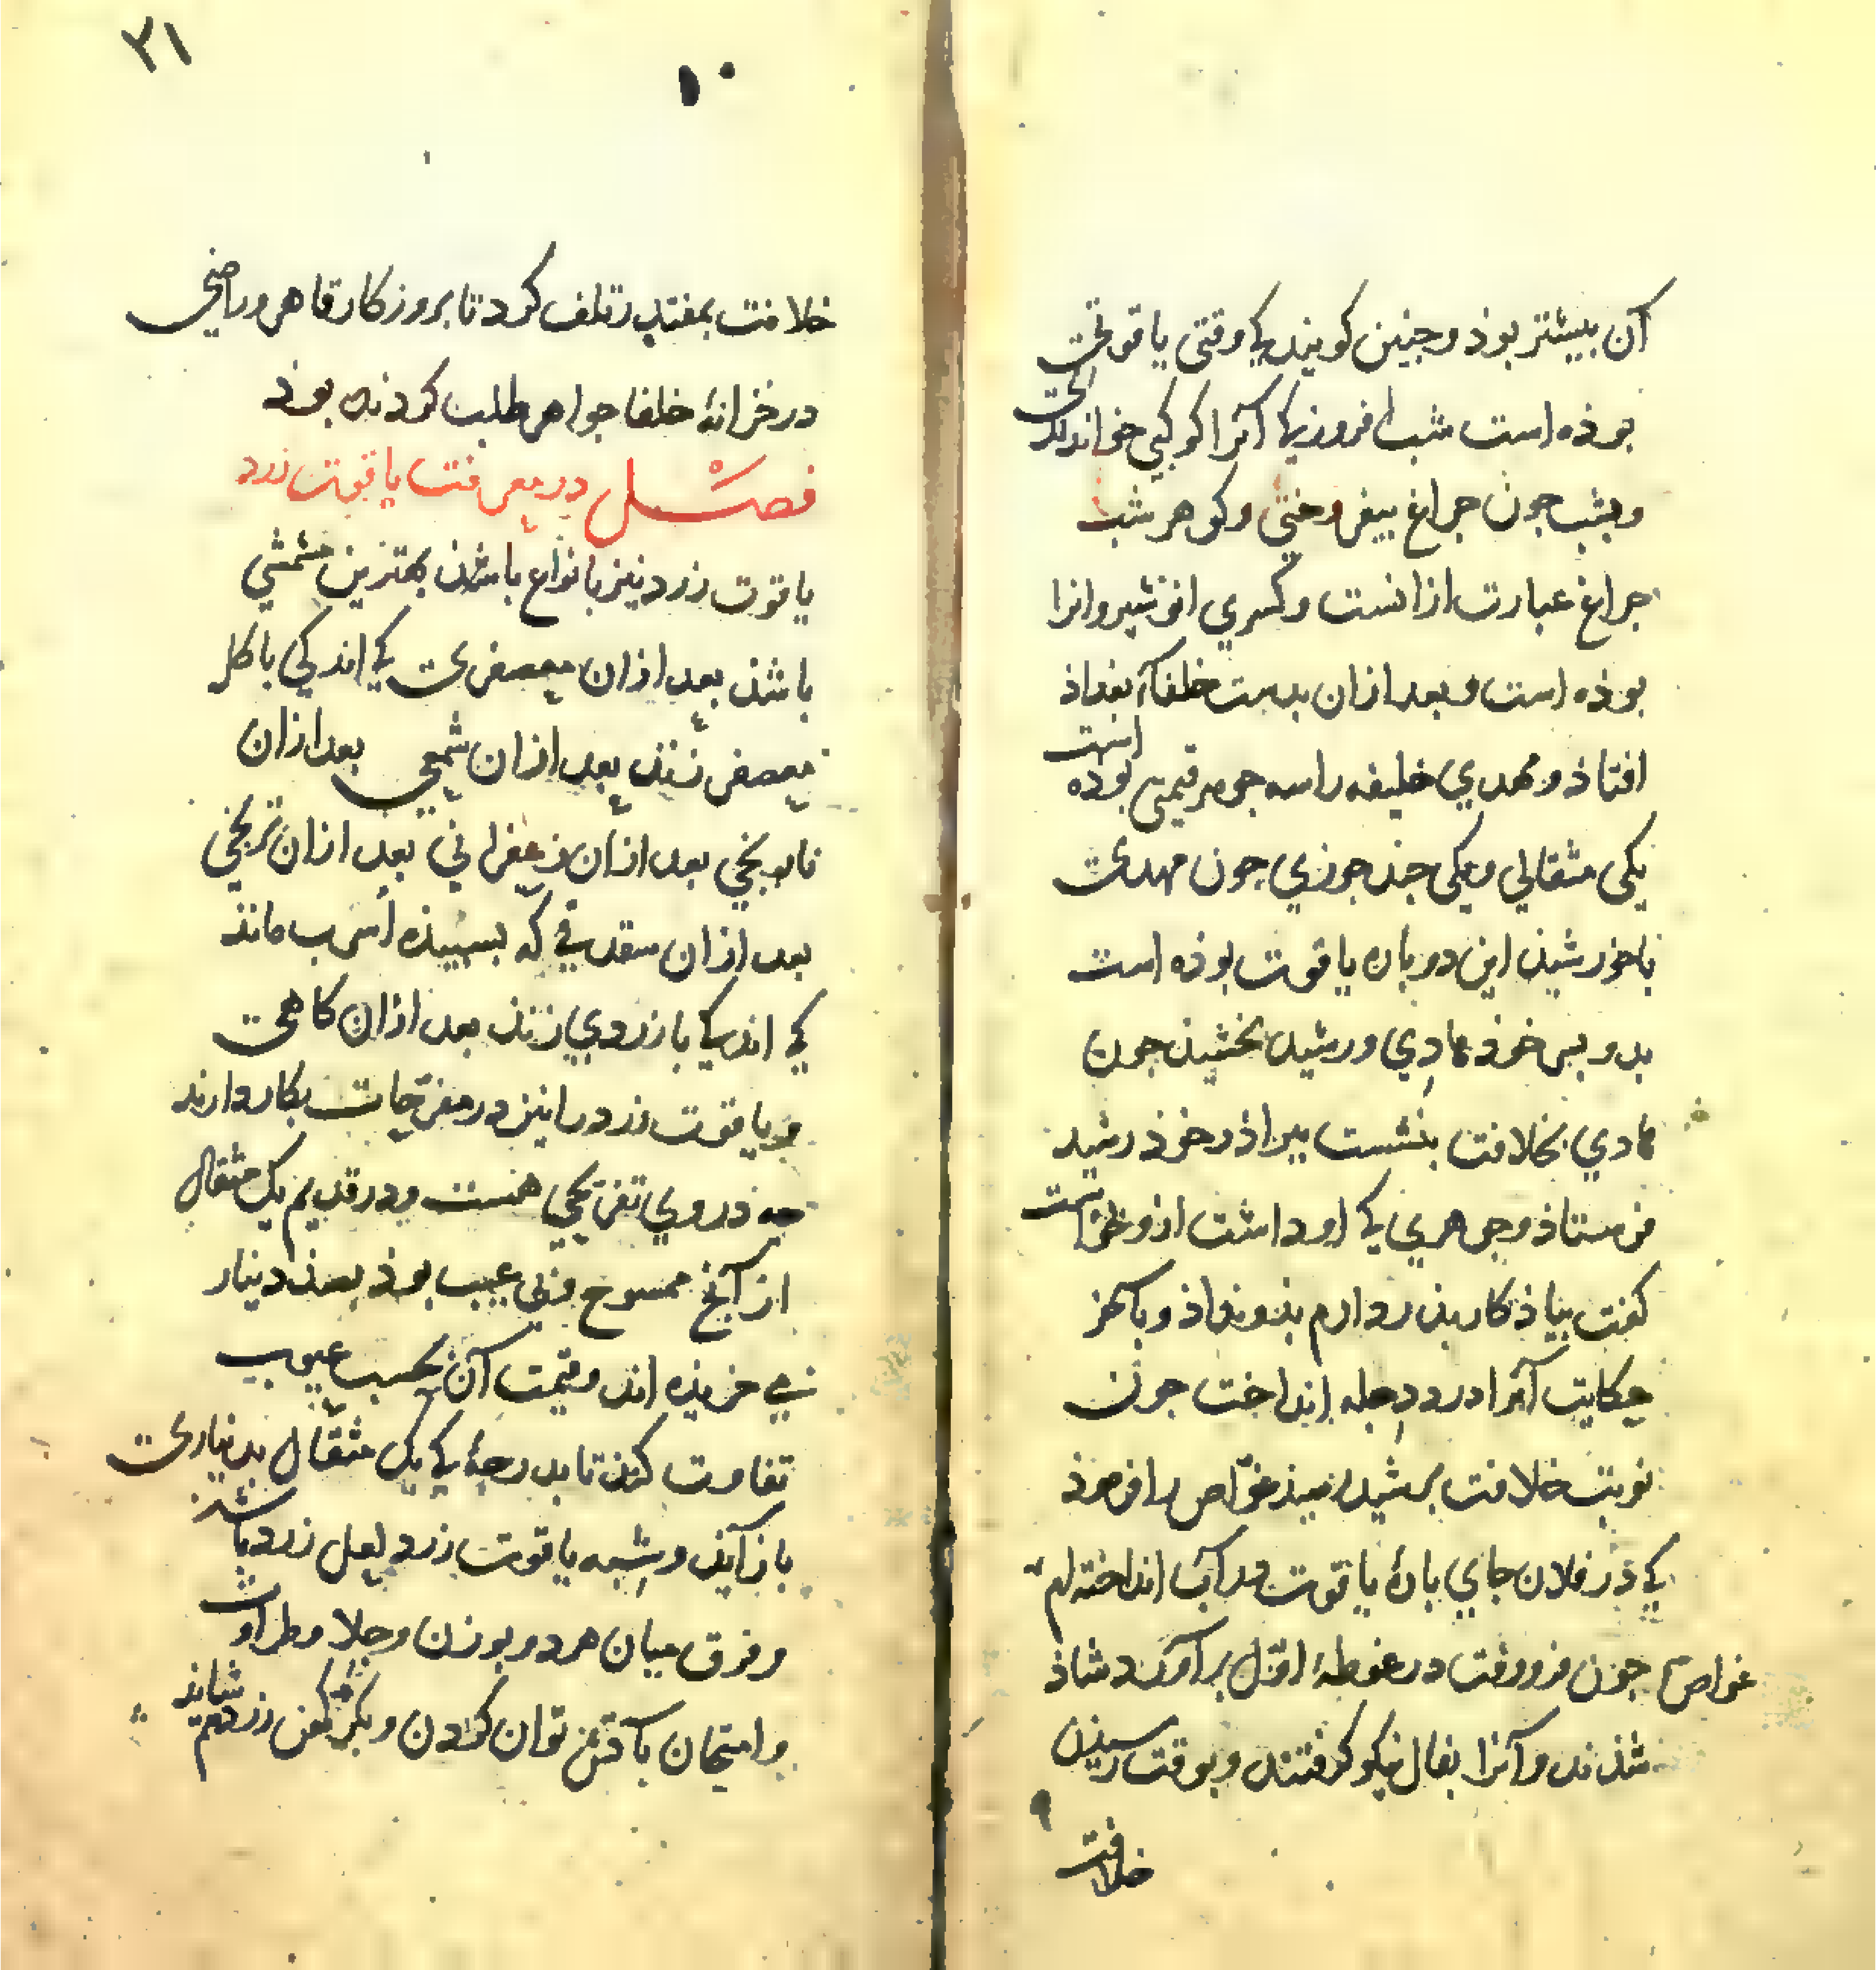 آن بیشتر بوذ وجنین کویند کی وقتی یاقوتی
بوذه است شب افروز کی آنرا کوکبی خواندندی
وبشب جون جراغ بیفروختی وکوهر شب
جراغ عبارت ازانست وکسری انوشیروانرا
بوذه است وبعد ازان بدست خلفاء بغداذ
افتاذ ومهدی خلیفه را سه جوهر قیمتی بوذه است
یکی مثقالی ویکی جند جوزی جون مهدی
باخورشیذ این دو باره یاقوت بوذه است
بدو بسر خوذ هادی ورشید بخشیذ جون
هادی بخلافت بنشست ببراذر خوذ رشید
فرستاذ وجوهری کی او داشت ازو خواست
کفت بیاذکار بذر دارم بذو نداذ وبآخر
حکایت آنرا در دجله انداخت جون
نوبت خلافت برشید رسیذ غواص را فرموذ
کی در فلان جای بارهٔ یاقوت در آب انداخته ام
غواص جون فرو رفت در غوطهٔ اول برآورد شاذ
شذند وآنرا بفال نیکو کرفتند وبوقت رسیذن
خلافت
٣١
١٠
خلافت بمقتدر تلف کرد تا بروزکار قاهر وراضی
در خزانهٔ خلفا جواهر طلب کردند بوذ
فصل در معرفت یاقوت زرد
یاقوت زرد نیز بانواع باشذ بهترین مشمشی
باشذ بعد ازان معصفری کی اندکی با کل
معصفر زنذ بعد ازان شمعی بعد ازان
نارنجی بعد ازان زعفرانی بعد ازان ترنجی
بعد ازان که بسبیذه اسرب مانذ
کی اندکی با زردی زنذ بعد ازان کاهی
ویاقوت زرد را نیز در مفرحات بکار دارند
جه در وی تفریحی هست ودر قدیم یک مثقال
از آنج ممسوح وبی عیب بوذ بصذ دینار
می خریذه اند وقیمت آن بحسب عیوب
تفاوت کنذ تا بدرجهٔ کی یک مثقال بدیناری
باز آیذ وشبه یاقوت زرد لعل زرد باشذ
وفرق میان هر دو بوزن وجلا وطراوت
وامتحان بآتش توان کردن وبکرکهن زر هم شاید